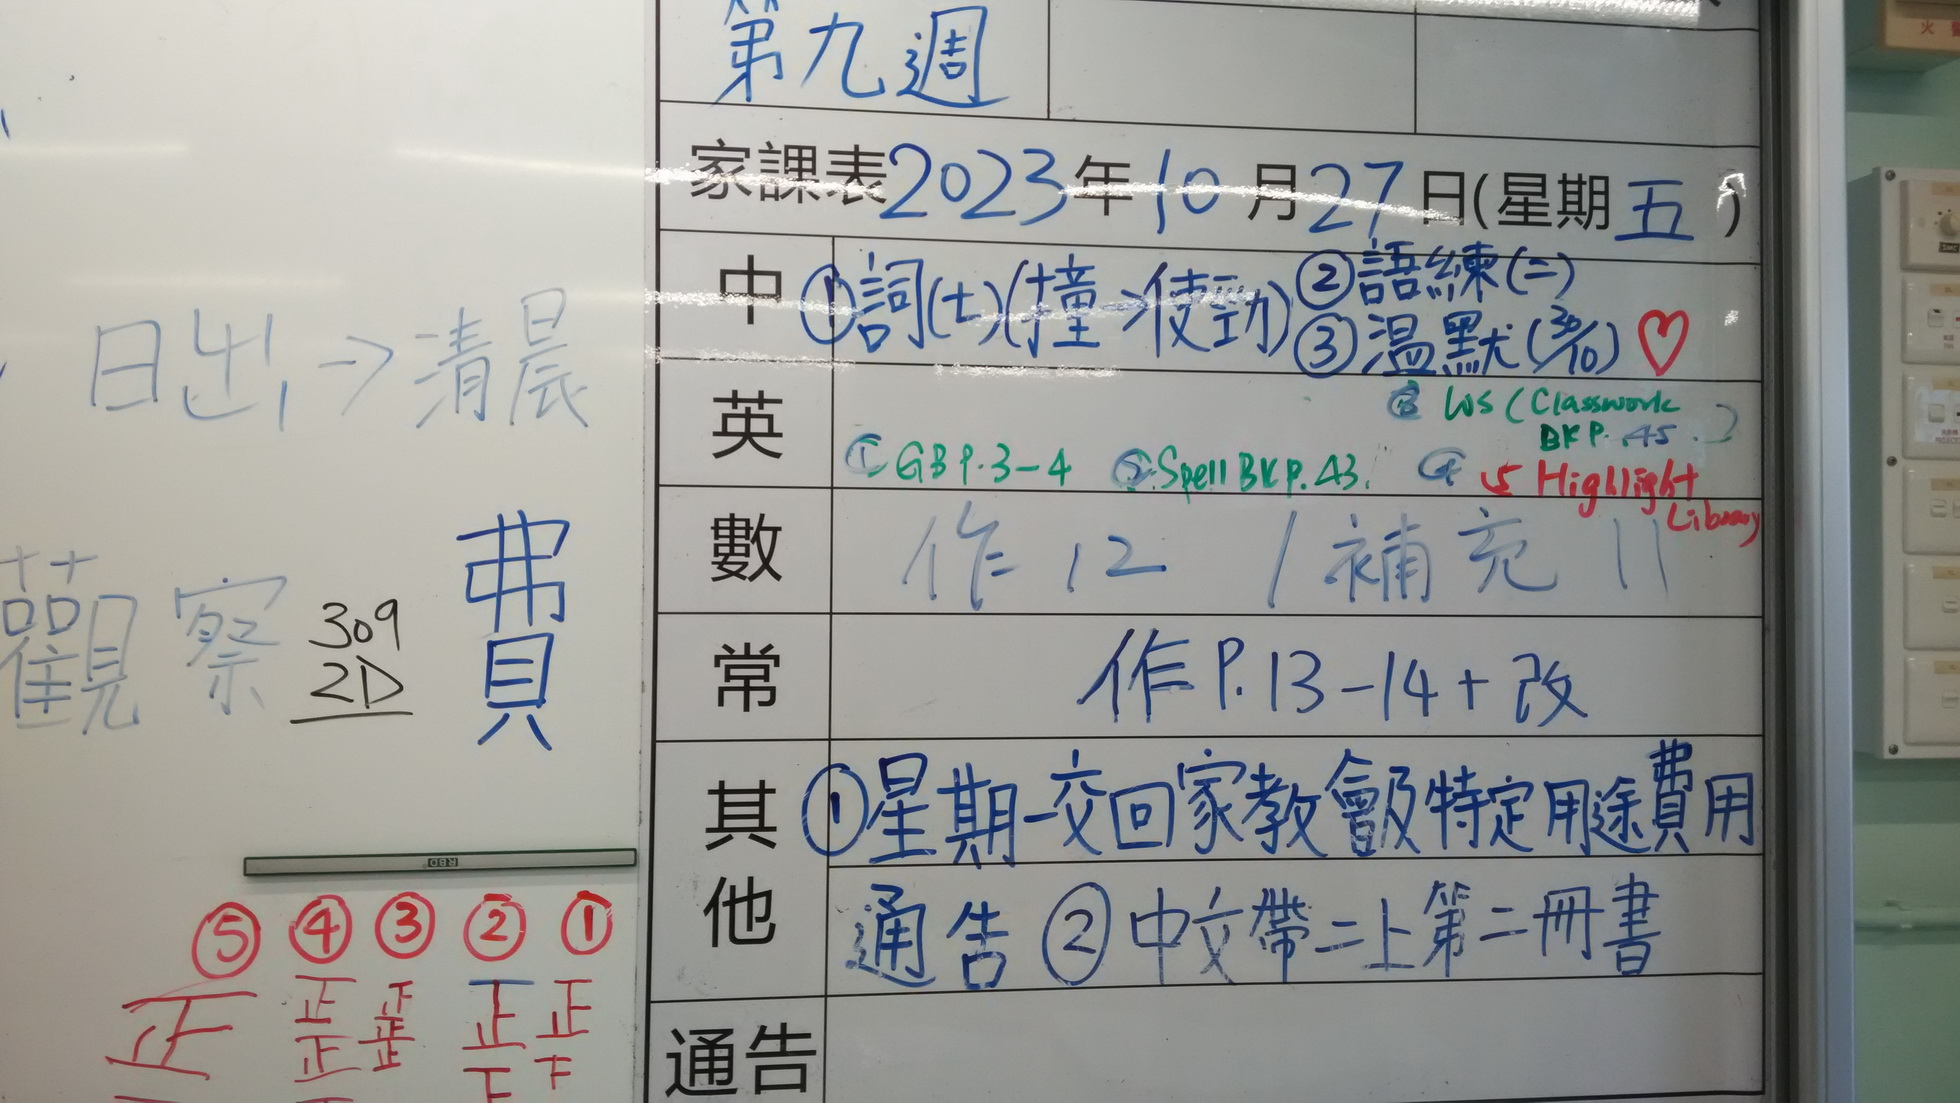 第九週
家課表2023年10月27日(星期五)
中 ①詞(七)(撞→使勁) ②語練(二)
③溫默(30/10)♡
英 ③ WS (Classwork
BK P. 45.)
① GB P.3-4 ② Spell BK P. 43. ④ Highlight
Library
數 作 12 / 補充 11
常 作P.13-14+改
其他 ①星期一交回家教會及特定用途費用
通告 ②中文帶二上第二冊書
通告
日出→清晨
觀察
309
2D
費
⑤ ④ ③ ② ①
正 正 正 正 正
正 正